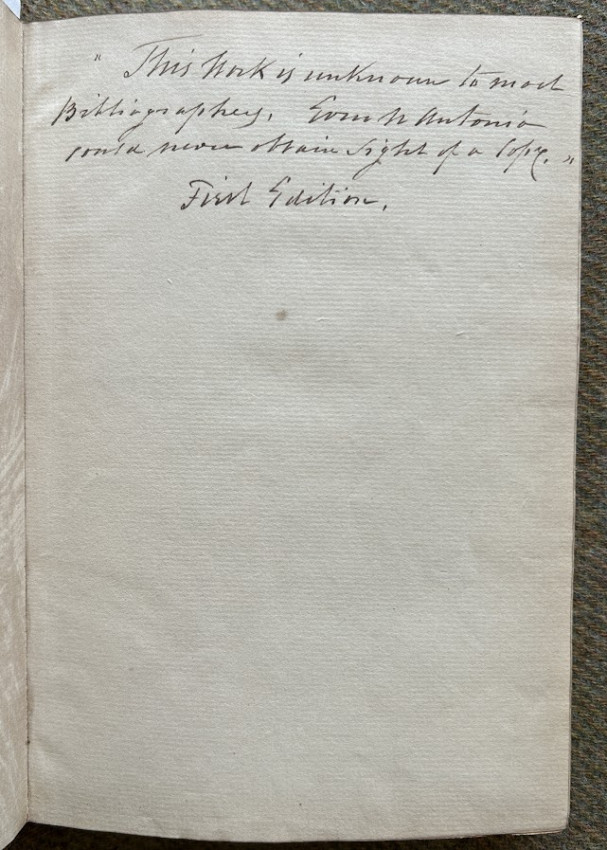 " This Work is unknown to most
Bibliographers. Even N Antonio
could never obtain sight of a Copy. "
First Edition.